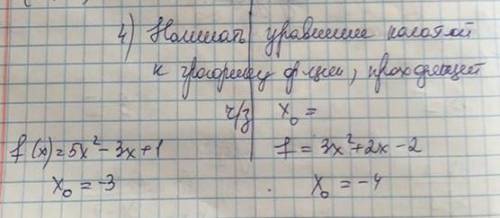 4) Написать уравнение касатой
к графику ф-ции, проходящей
ч/з x₀ =
f(x) = 5x² - 3x + 1
x₀ = -3
f = 3x² + 2x - 2
x₀ = -4